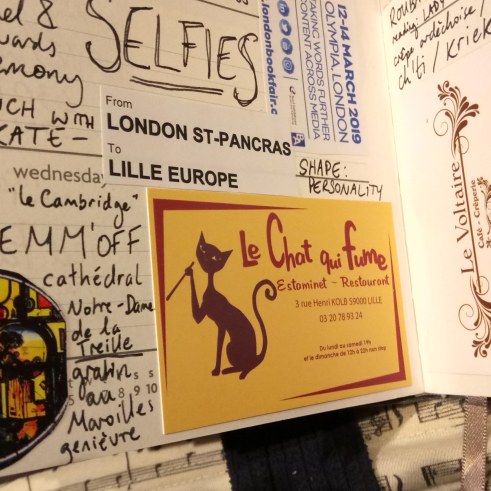 & 
SELFIES
wards
emony
12-14 MARCH 2019
OLYMPIA, LONDON
MAKING WORDS FURTHER
CONTENT ACROSS MEDIA
londonbookfair.c
CH WITH
KATE-
From
LONDON ST-PANCRAS
To
LILLE EUROPE
SHAPE:
PERSONALITY
wednesday
"le Cambridge"
EMM'OFF
cathédral
Notre-Dame
de la
Treille
gratin
lava
Maroilles
genièvre
8 9 10
Le Chat qui fume
Estaminet - Restaurant
3 rue Henri KOLB 59000 LILLE
03 20 78 93 24
Du lundi au samedi 19h
et le dimanche de 12h à 02h non stop
making LADY
crêpe ardéchoise/
ch'ti / Kriek
Le Voltaire
Café - Crêperie